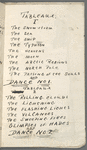 TABLEAUX.
I
THE SNOW STORM
THE SEA
THE SHIP
THE TYPHOON
THE
THE MOON
THE ARCTIC REGIONS
THE NORTH POLE
THE FALLING OF THE DOLLS
DANCE No 1
TABLEAUX
THE ROLLING CLOUDS
THE LIGHTNING
THE FLASHING LIGHTS
THE VOLCANOES
THE SHOOTING FIRES
GLIMPSES OF HADES
DANCE No 2